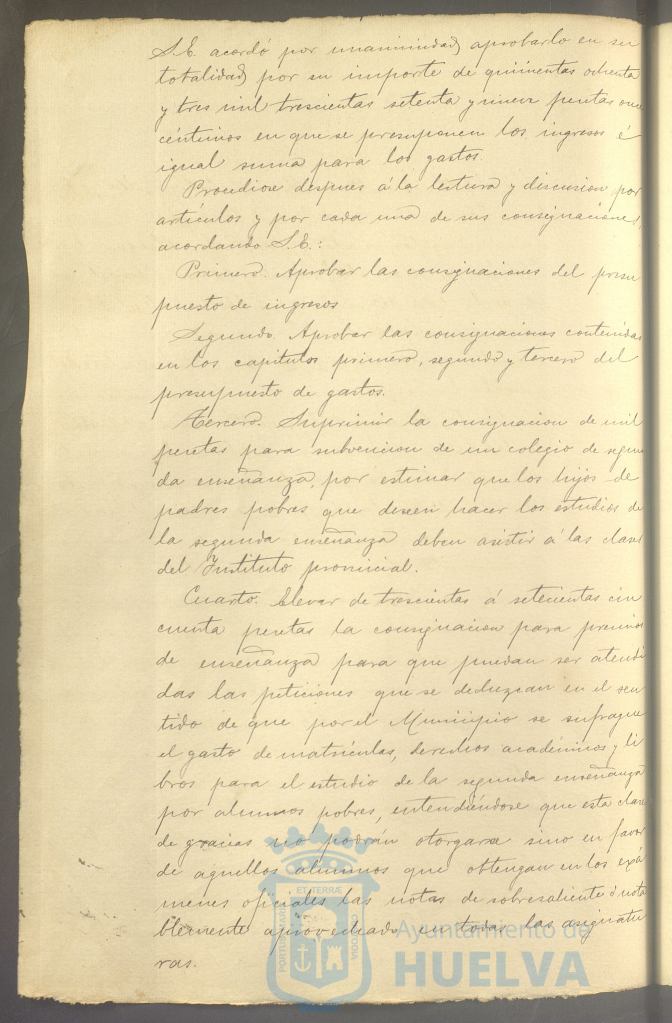 S.E. acordó por unanimidad, aprobarlo en su
totalidad, por su importe de quinientas ochenta
y tres mil trescientas setenta y nueve pesetas once
céntimos en que se presuponen los ingresos é
igual suma para los gastos.
Procediose despues á la lectura y discusion por
artículos y por cada una de sus consignaciones,
acordando S.E.:
Primero. Aprobar las consignaciones del presu
puesto de ingresos
Segundo. Aprobar las consignaciones contenidas
en los capitulos primero, segundo y tercero del
presupuesto de gastos.
Tercero. Suprimir la consignacion de mil
pesetas para subvencion de un colegio de segun
da enseñanza, por estimar que los hijos de
padres pobres que deseen hacer los estudios de
la segunda enseñanza deben asistir á las clases
del Instituto provincial.
Cuarto. Elevar de trescientas á setecientas cin
cuenta pesetas la consignacion para premios
de enseñanza para que puedan ser atendi
das las peticiones que se deduzcan en el sen
tido de que por el Municipio se sufrague
el gasto de matrículas, derechos académicos y li
bros para el estudio de la segunda enseñanza
por alumnos pobres, entendiéndose que esta clase
de gracias no podrán otorgarse sino en favor
de aquellos alumnos que obtengan en los exá
menes oficiales las notas de sobresaliente ó nota
blemente aprovechado en todas las asignatu
ras.
ET TERRÆ
PORTUS MARIS
CUSTODIA
Ayuntamiento de
HUELVA